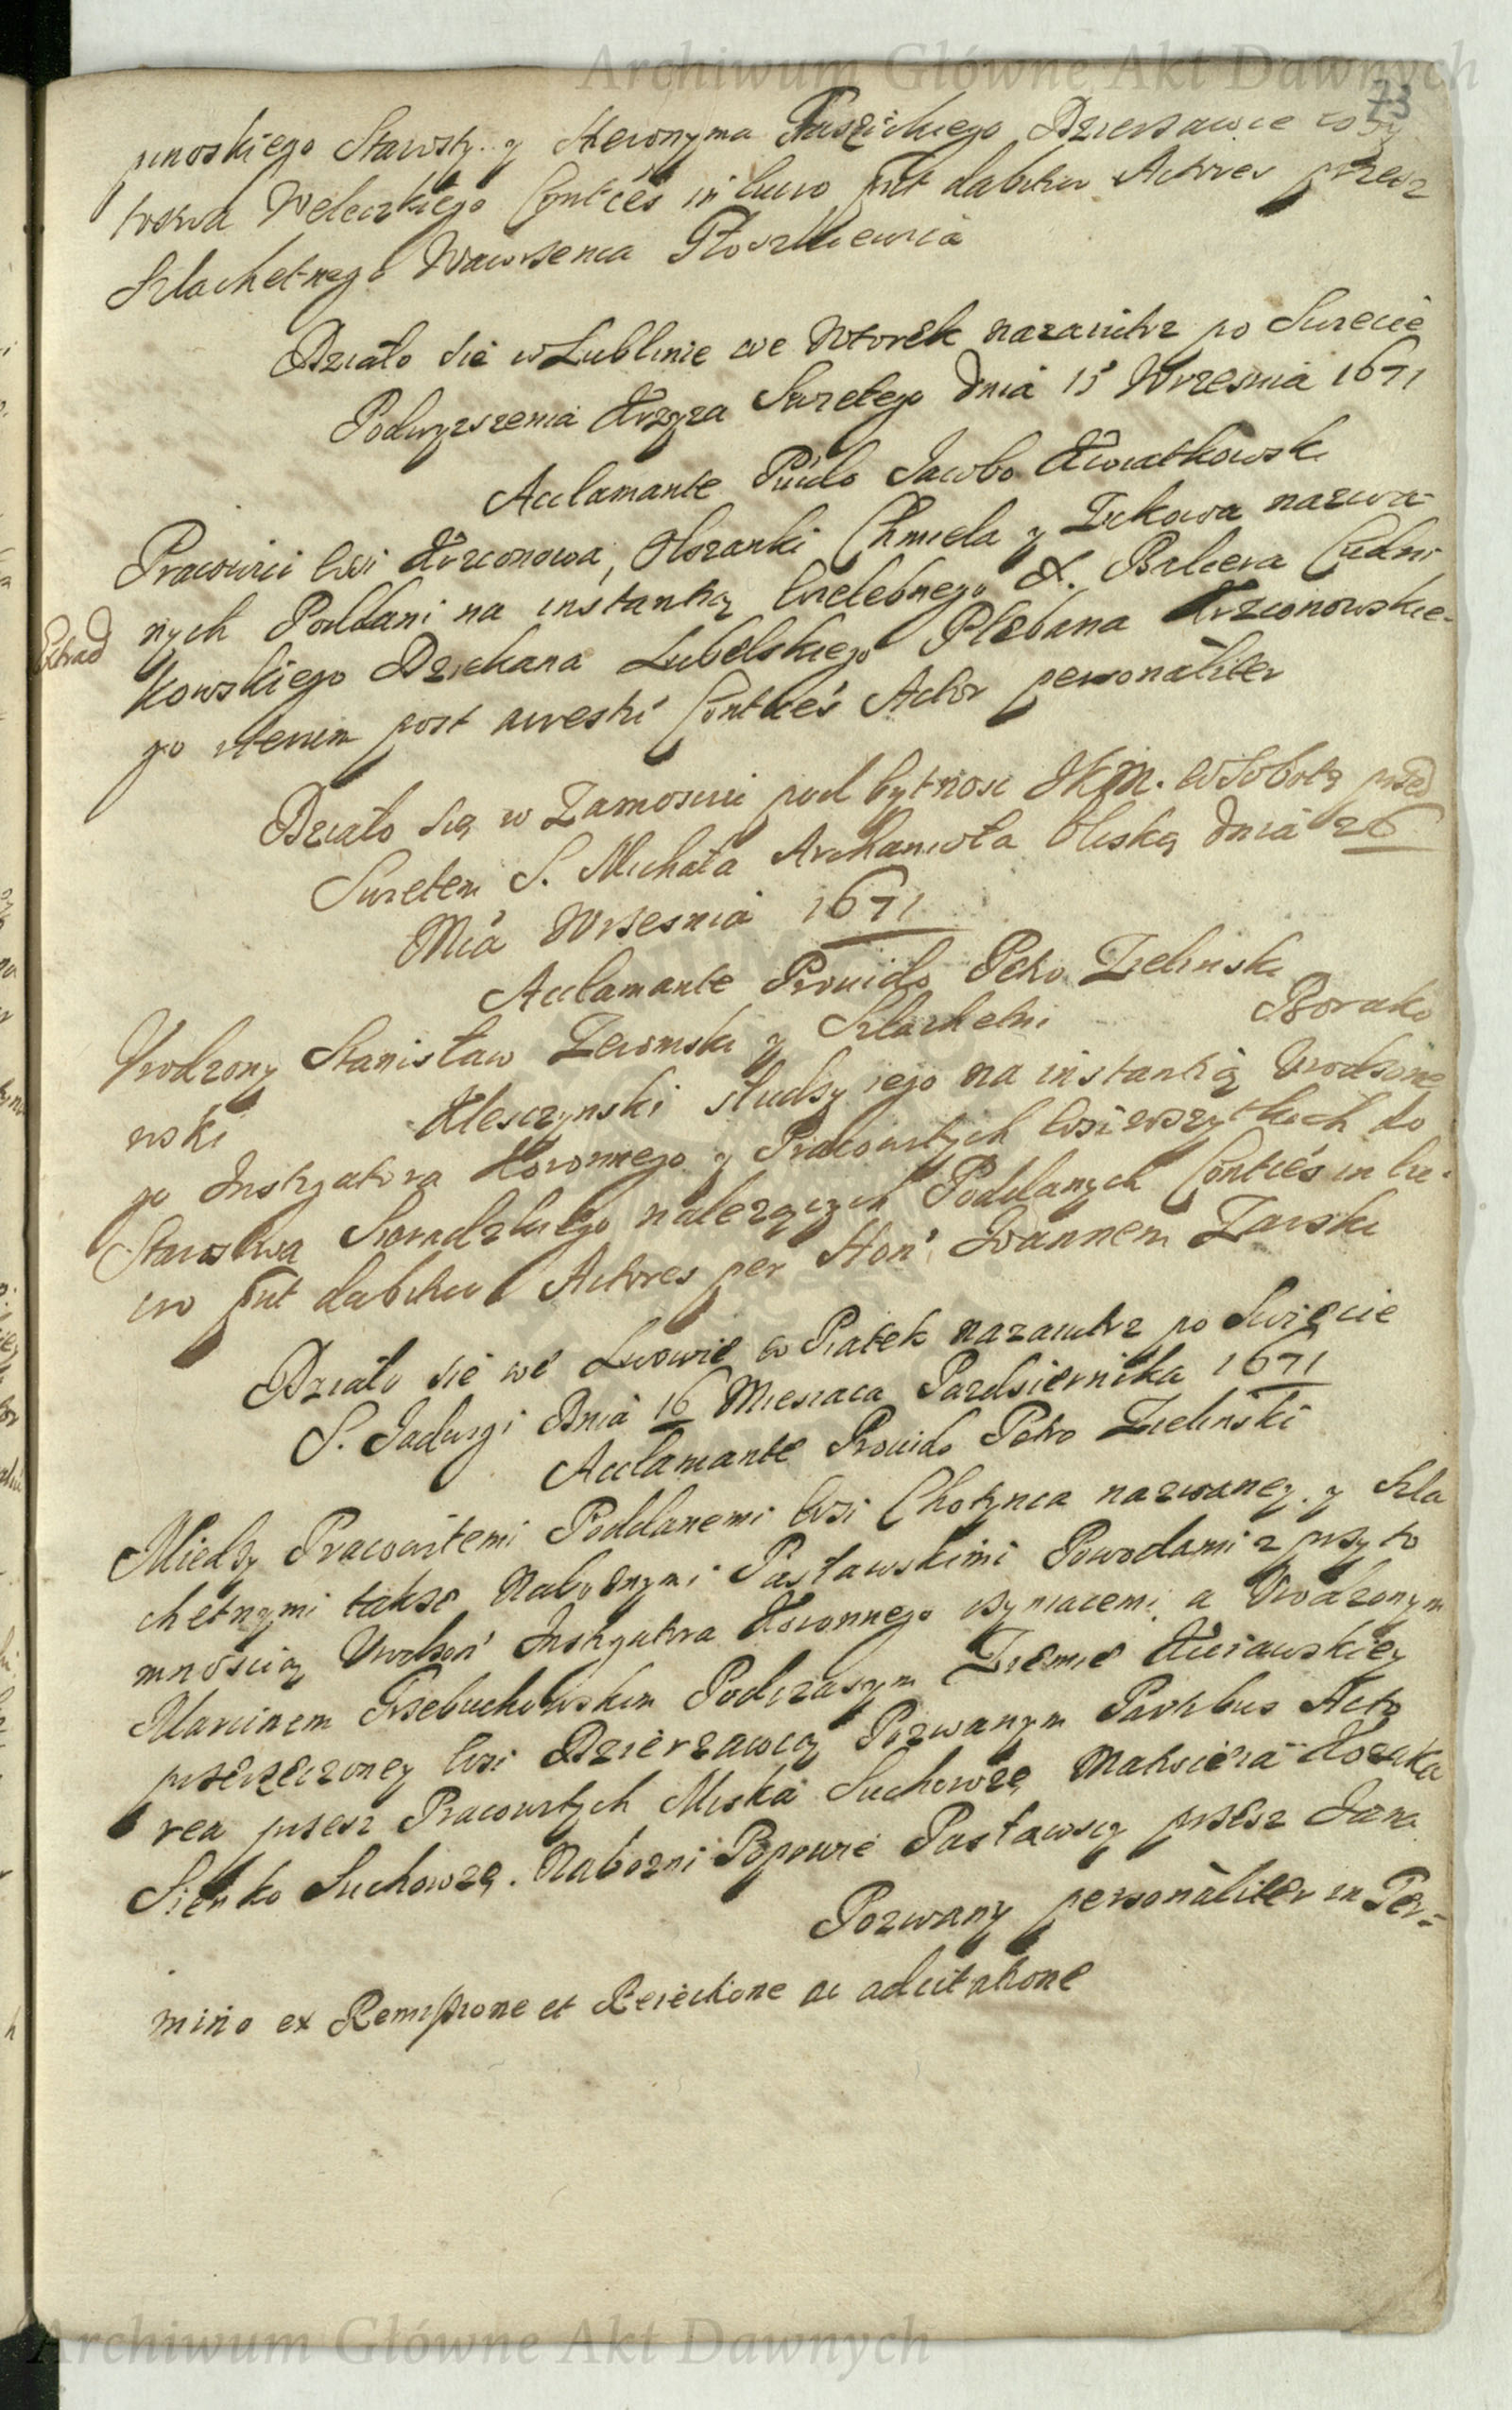 Archiwum Główne Akt Dawnych
73
y Hieronyma Dzierzawce
Weleczkiego Conties in lucro put dabitur Actores przez
Szlachetnego Wawrzenca
Działo sie w Lublinie we Wtorek nazaiutrz po Swiecie
Podwyzszenia Krzyza Swietego Dnia 15 Wrzesnia 1671
Acclamante Puido Jacobo Kwiatkowski
Pracowici Wsi Krzconowa, Olszanki Chmiela y Zukowa nazwa-
nych Poddani na instantią Wielebnego X.
kowskiego Dziekana Lubelskiego Plebana Krzconowskie-
go iterum post aresti Conties Actor personaliter
Działo się w Zamosciu pod bytnosc JKM. w Sobotę przed
Swietem S. Michała Archanioła bliską Dnia 26
Mca Wrzesnia 1671
Acclamante Prouido Petro Zielinski
Vrodzony Stanisław y Szlachetni Borako
wski Kleszczynski słudzy iego na instantią Vrodzone
go Instigatora Koronnego y Pracowitych Wsi wszytkich do
Starostwa należących Poddanych Conties in lu-
cro put dabitur Actores per Hon Joannem Zarski
Działo sie we Lwowie w Piatek nazaiutrz po Swięcie
S. Jadwigi Dnia 16 Miesiaca Pazdziernika 1671
Acclamante Prouido Petro Zielinski
Miedzy Pracowitemi Poddanemi Wsi Chotynca nazwaney y Szla
chetnymi także Nabożnymi Pastawskimi Powodami z przyto
mnością Vrodzon Instigatora Koronnego czyniacemi a Vrodzonym
Marcinem Grzebuchowskim Podczaszym Ziemie Kuiawskiey
przerzeczoney Wsi Dzierżawcą Pozwanym Partibus Acto
rea przez Pracowitych Miska Suchowzę Kozaka
Sienko Suchowzę. Nabozni Popowie Pastawscy przez Jana
Pozwany personaliter in Ter-
mino ex Remissione et Reiectione ac adcitatione
Archiwum Główne Akt Dawnych